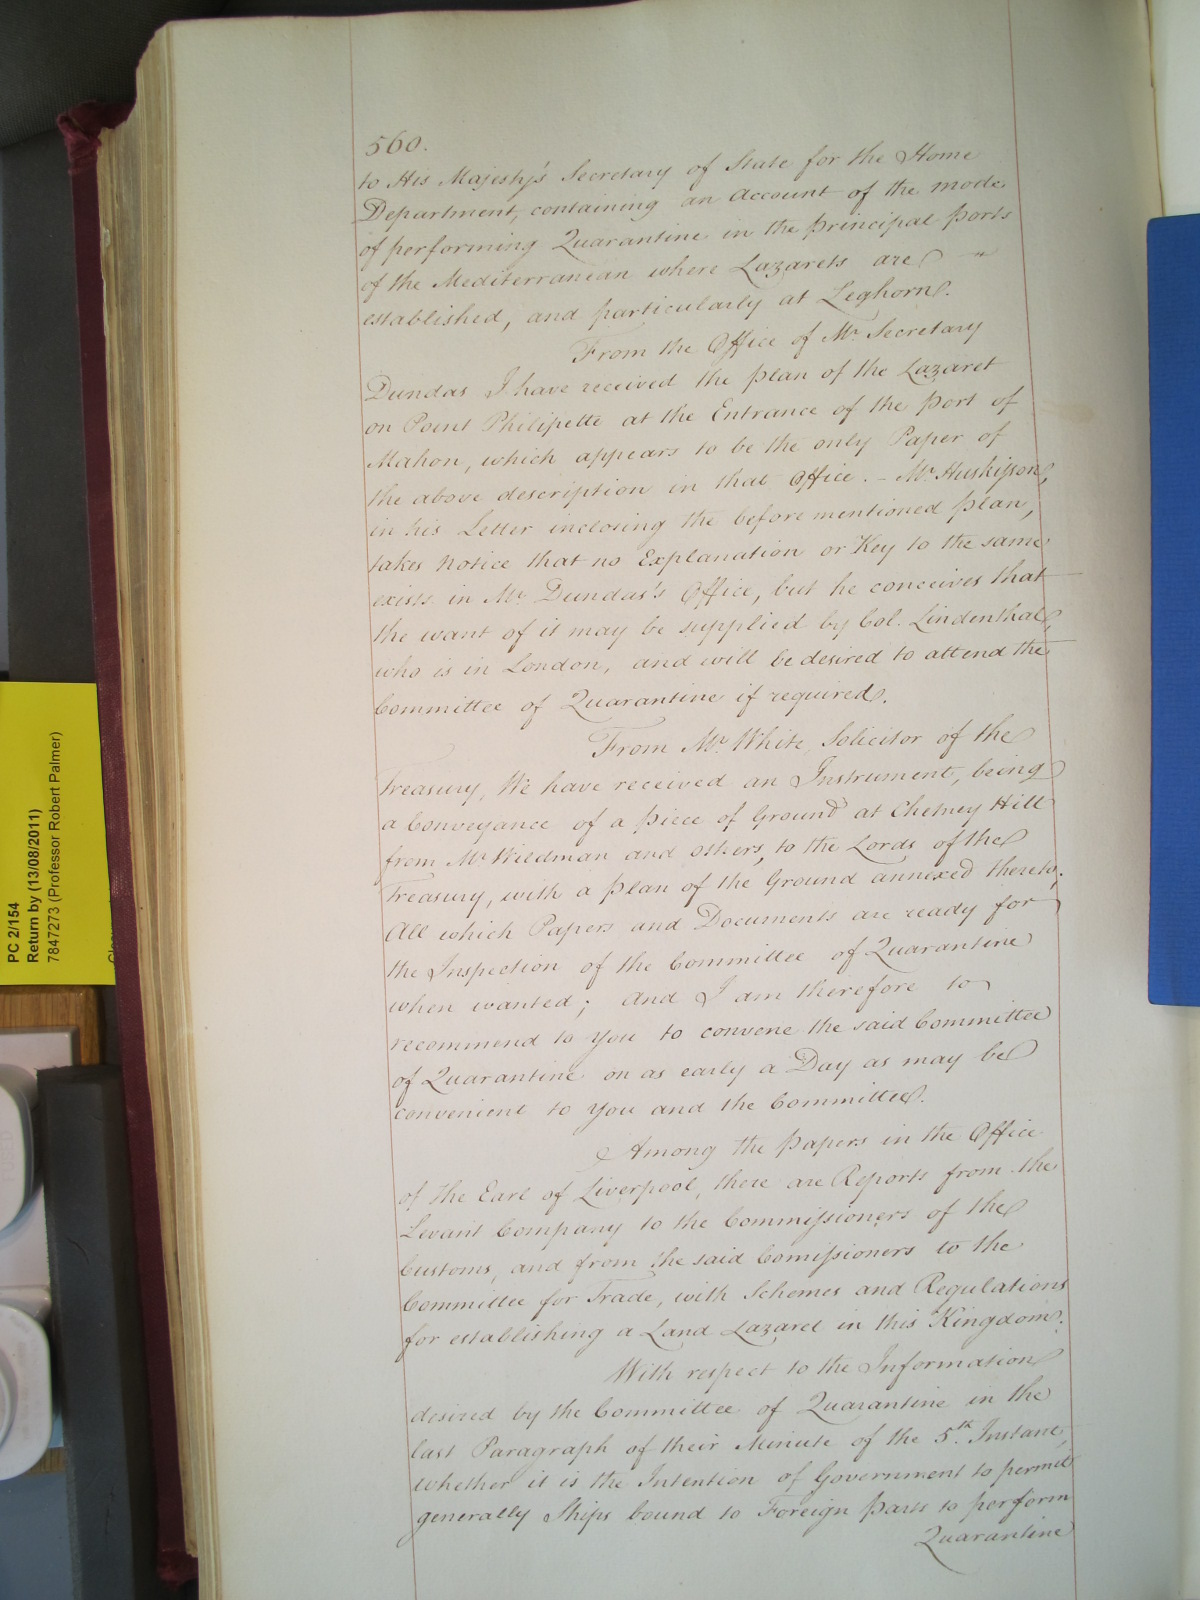 560.
to His Majesty's Secretary of State for the Home
Department, containing an Account of the mode
of performing Quarantine in the principal ports
of the Mediterranean where Lazarets are
established, and particularly at Leghorn.
From the Office of Mr. Secretary
Dundas I have received the plan of the Lazaret
on Point Philipette at the Entrance of the Port of
Mahon, which appears to be the only Paper of
the above description in that Office. - Mr. Huskisson,
in his Letter inclosing the beforementioned plan,
takes notice that no Explanation or Key to the same
exists in Mr. Dundas's Office, but he conceives that
the want of it may be supplied by Col. Lindenthal,
who is in London, and will be desired to attend the
Committee of Quarantine if required.
From Mr. White, Solicitor of the
Treasury, We have received an Instrument, being
a Conveyance of a piece of Ground at Chetney Hill
from Mr. Wildman and others, to the Lords of the
Treasury, with a plan of the Ground annexed thereto;
All which Papers and Documents are ready for
the Inspection of the Committee of Quarantine
when wanted; and I am therefore to
recommend to you to convene the said Committee
of Quarantine on as early a Day as may be
convenient to you and the Committee.
Among the papers in the Office
of the Earl of Liverpool, there are Reports from the
Levant Company to the Commissioners of the
Customs, and from the said Comissioners to the
Committee for Trade, with Schemes and Regulations
for establishing a Land Lazaret in this Kingdom.
With respect to the Information
desired by the Committee of Quarantine in the
last Paragraph of their Minute of the 5th. Instant,
whether it is the Intention of Government to permit
generally Ships bound to Foreign parts to perform
Quarantine
PC 2/154
Return by (13/08/2011)
7847273 (Professor Robert Palmer)